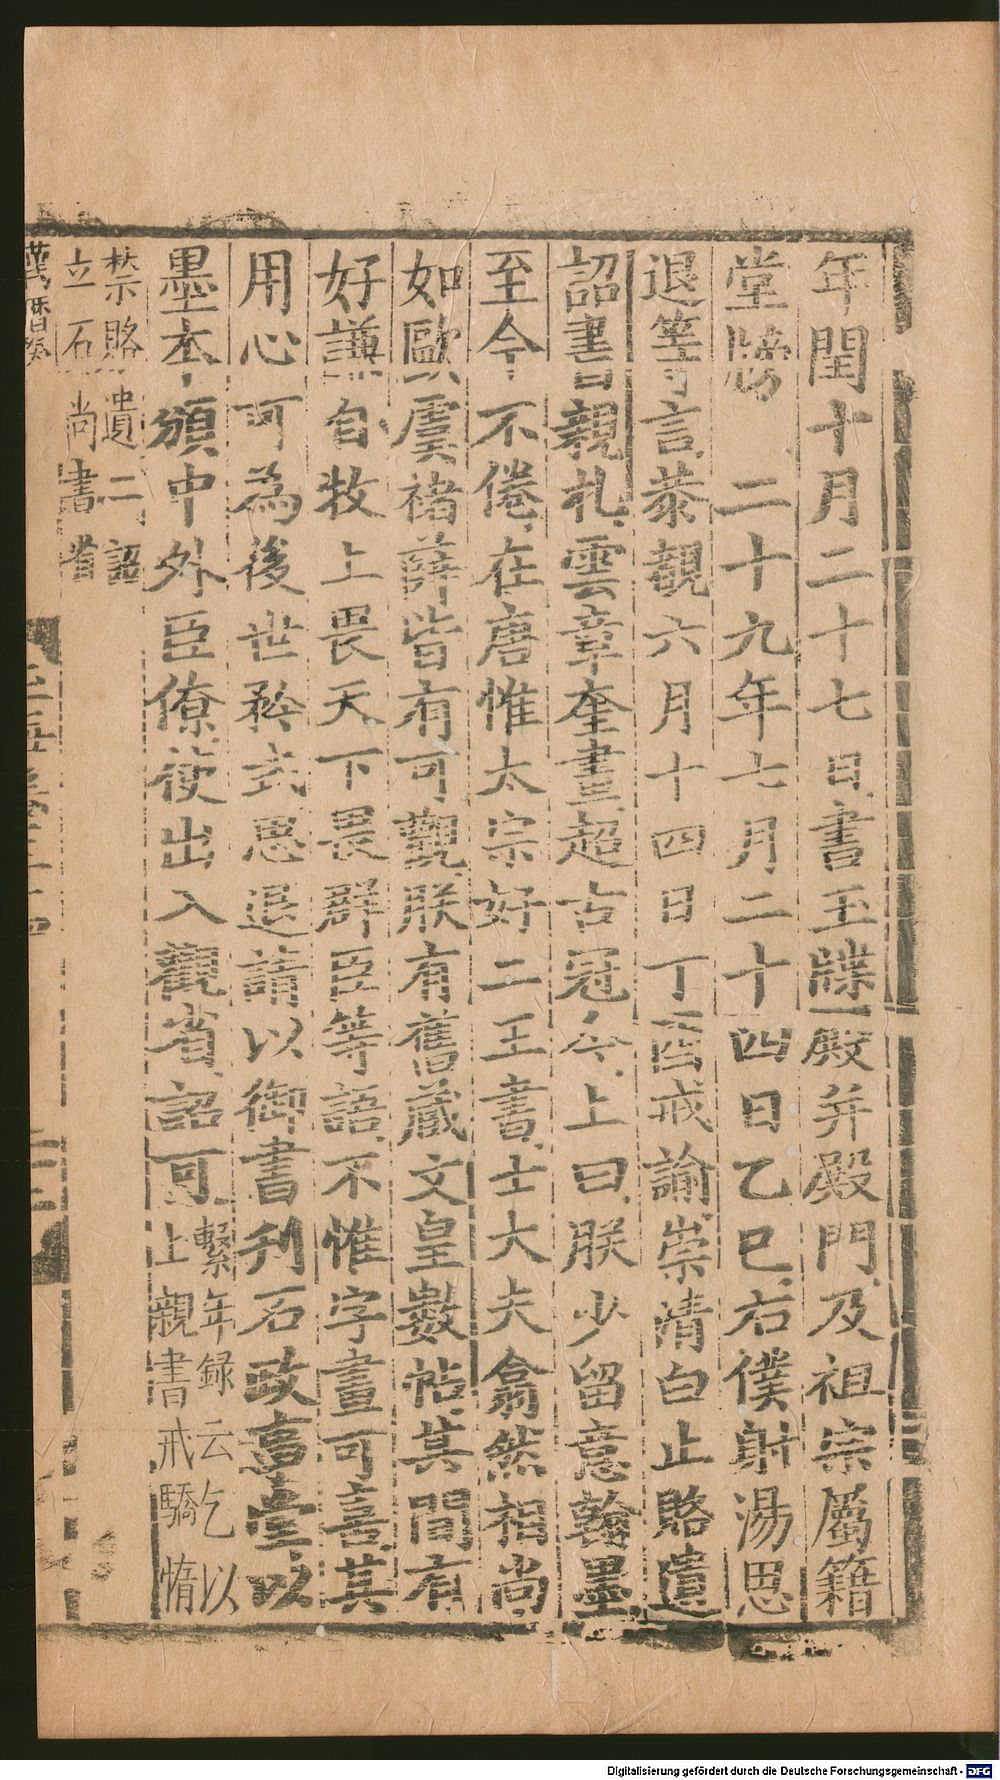 年閏十月二十七日書玉牒殿并殿門及祖宗屬籍
堂牓 二十九年七月二十四日乙巳右僕射湯思
退等言恭觀六月十四日丁酉戒諭崇清白止賂遺
詔書親札雲章奎畫超古冠今上曰朕少留意翰墨
至今不倦在唐惟太宗好二王書士大夫翕然相尚
如歐虞褚薛皆有可觀朕有舊藏文皇數帖其間有
好謙自牧上畏天下畏群臣等語不惟字畫可喜其
用心可為後世矜式思退請以御書刋石政事堂以
墨本頒中外臣僚使出入觀省詔可
繫年録云乞以
上親書戒驕惰
禁賂遺二詔
立石尚書省
Digitalisierung gefördert durch die Deutsche Forschungsgemeinschaft - DFG